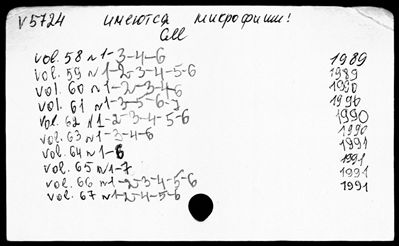 V5724 имеются микрофиши!
Cell
vol. 58 N1-3-4-6 1989
vol. 59 N1-2-3-4-5-6 1989
vol. 60 N1-2-3-4-6 1990
vol. 61 N1-3-5-6-7 1990
vol. 62 N1-2-3-4-5-6 1990
vol. 63 N1-3-4-6 1990
vol. 64 N1-6 1991
vol. 65 N1-7 1991
vol. 66 N1-2-3-4-5-6 1991
vol. 67 N1-2-4-5-6 1991